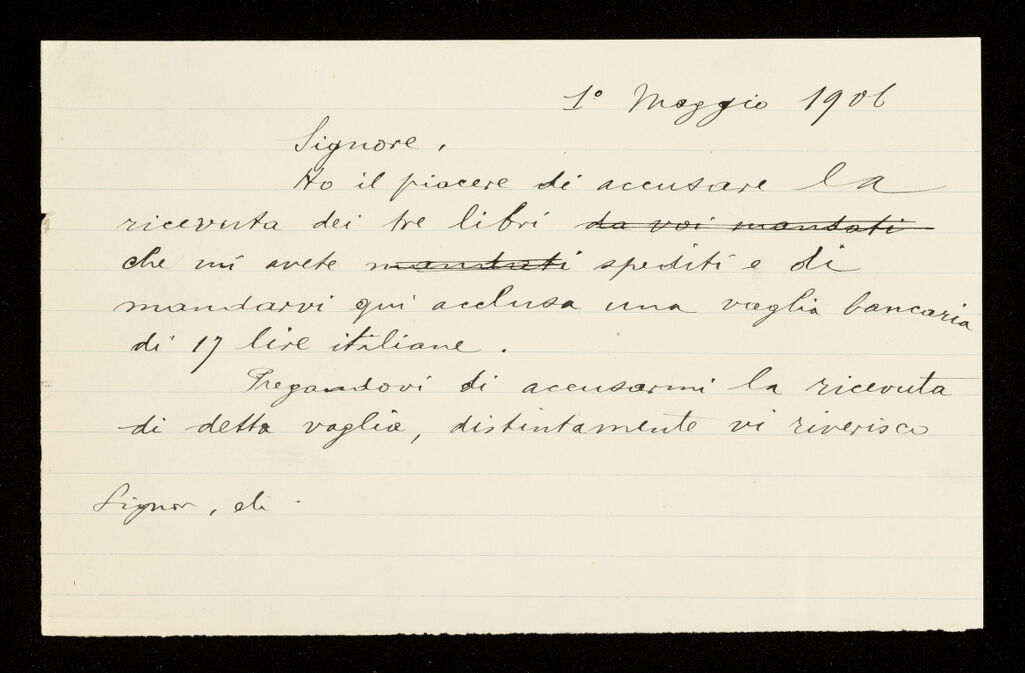 1º Maggio 1906
Signore,
Ho il piacere di accusare la
ricevuta dei tre libri da voi mandati
che mi avete mandati spediti e di
mandarvi qui acclusa una vaglia bancaria
di 17 lire italiane.
Pregandovi di accusarmi la ricevuta
di detta vaglia, distintamente vi riverisco
Signor, etc.